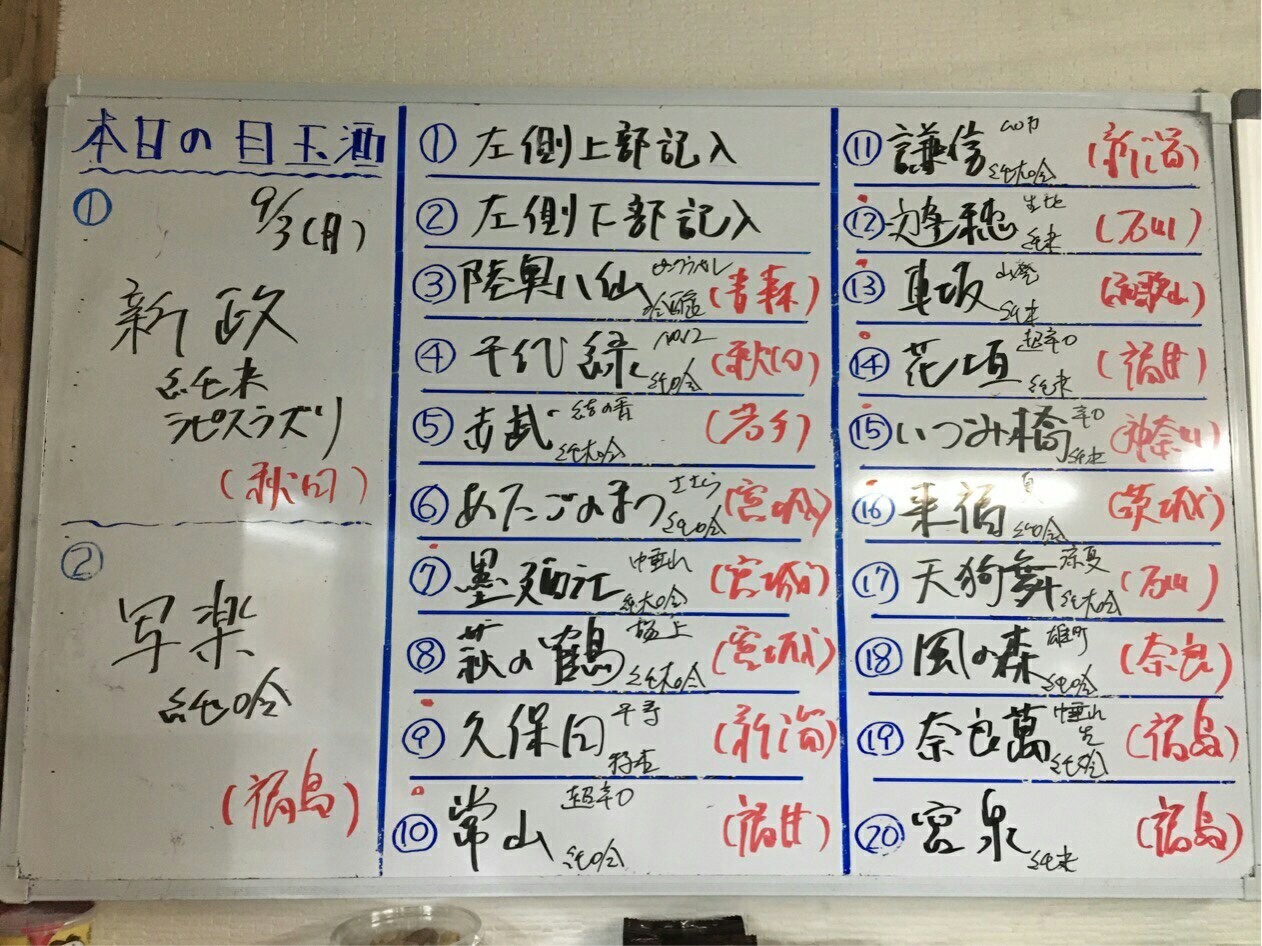 本日の目玉酒
①
9/3(月)
新政
純米
ラピスラズリ
(秋田)
②
写楽
純吟
(福島)
① 左側上部記入
② 左側下部記入
③ 陸奥八仙 (青森)
④ 千代緑 純吟 (秋田)
⑤ 赤武 純大吟 (岩手)
⑥ あたごのまつ ささら 純吟 (宮城)
⑦ 墨廼江 中垂れ 純大吟 (宮城)
⑧ 萩の鶴 極上 純大吟 (宮城)
⑨ 久保田 千寿 (新潟)
⑩ 常山 超辛口 純吟 (福井)
⑪ 謙信 純大吟 (新潟)
⑫ 遊穂 生もと 純米 (石川)
⑬ 車坂 山廃 純米 (和歌山)
⑭ 花垣 超辛口 純米 (福井)
⑮ いづみ橋 辛口 純米 (神奈川)
⑯ 来福 夏 純吟 (茨城)
⑰ 天狗舞 涼夏 純大吟 (石川)
⑱ 風の森 雄町 純吟 (奈良)
⑲ 奈良萬 中垂れ 生 純吟 (福島)
⑳ 宮泉 純米 (福島)